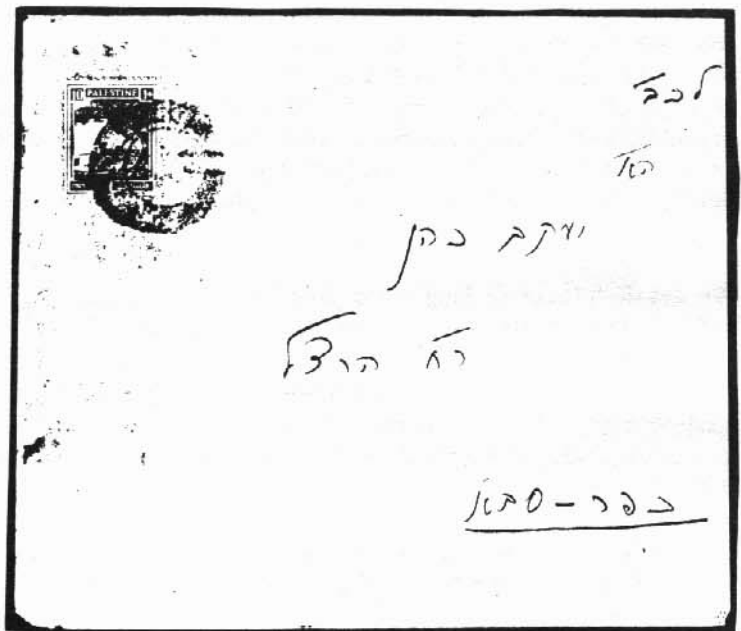 PALESTINE
לכב'
הא'
יעקב כהן
רח' הרצל
כפר-סבא